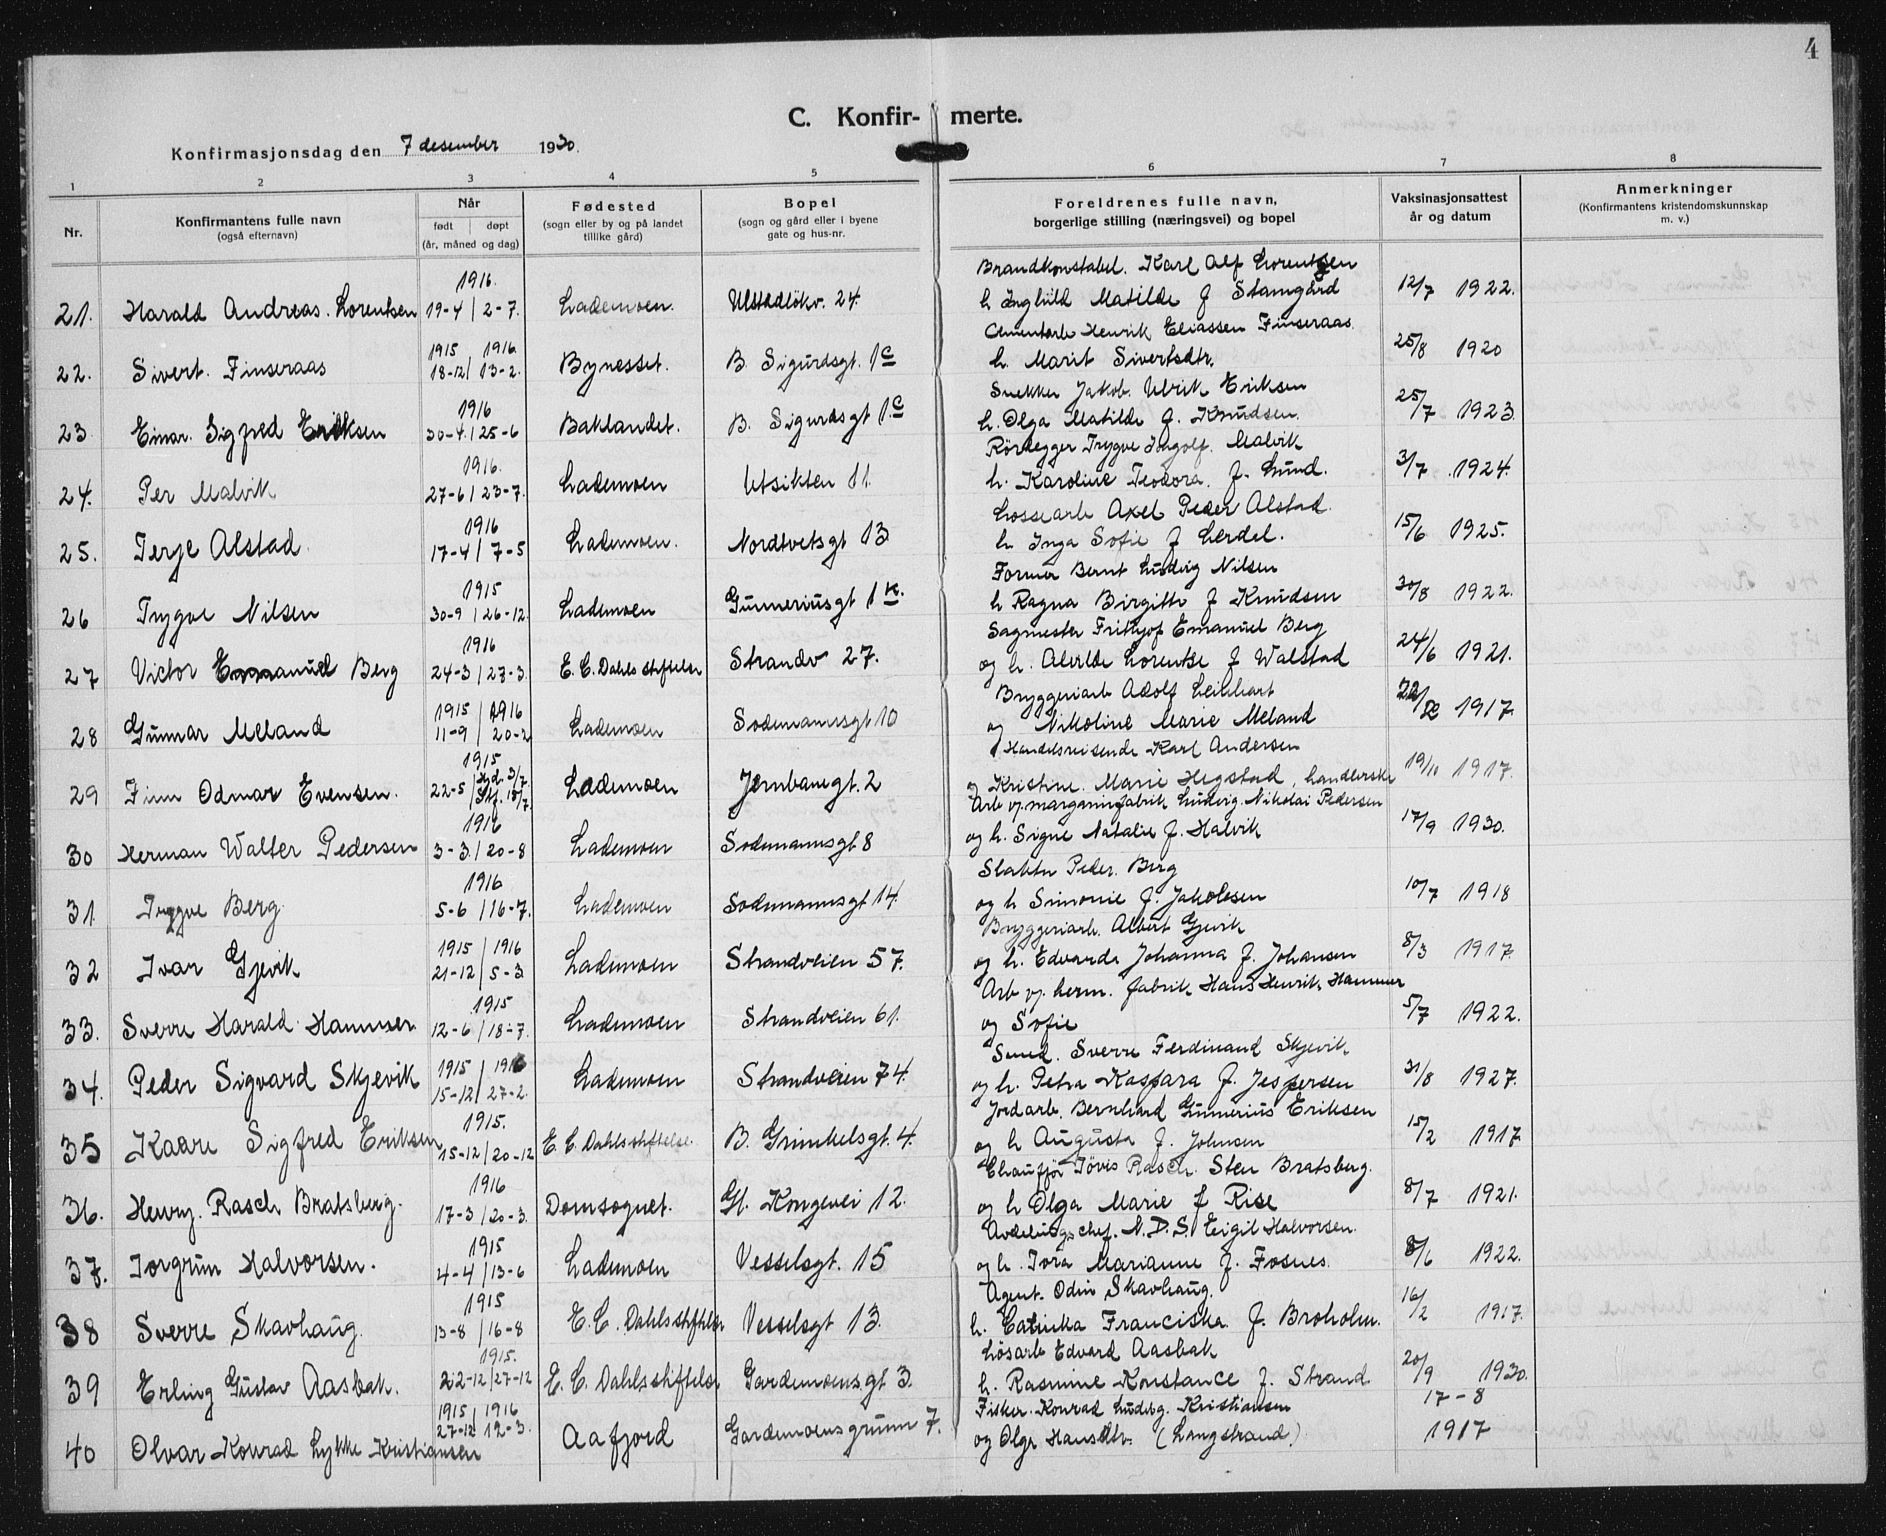 4
C. Konfir- merte.
Konfirmasjonsdag den 7 desember 1930.
1 2 3 4 5 6 7 8
Nr.
Konfirmantens fulle navn
(også efternavn)
Når
født døpt
(år, måned og dag)
Fødested
(sogn eller by og på landet
tillike gård)
Bopel
(sogn og gård eller i byene
gate og hus-nr.
Foreldrenes fulle navn,
borgerlige stilling (næringsvei) og bopel
Vaksinasjonsattest
år og datum
Anmerkninger
(Konfirmantens kristendomskunnskap
m. v.)
1916. Brandkonstabel. Karl Alf Lorentsen
21. Harald Andreas. Lorentsen 19-4 / 2-7. Lademoen. Ulstadløkv. 24. h Inghild Matilde f Stamgård 12/7 1922.
1915 / 1916 Cementarb Henrik Eliassen Finseraas
22. Sivert. Finseraas 18-12 / 13-2. Bynesset. B. Sigurdsgt. 1c h. Marit Sivertsdtr. 25/8 1920
1916 Snekker Jakob. Ulrik Eriksen
23 Einar. Sigfred Eriksen 30-4. / 25-6 Baklandet. B. Sigurdsgt 1c h. Olga Matilde f. Knudsen. 25/7 1923.
1916. Rørlegger Trygve Ingolf. Malvik
24. Per Malvik 27-6 / 23-7. Lademoen Utsikten 11. h. Karoline Teodora. f. Lund. 3/7 1924.
1916 Lossearb Axel Peder Alstad.
25. Terje Alstad. 17-4 / 7-5 Lademoen. Nordtvetsgt 13 h Inga Sofie f Lerdel. 15/6 1925.
1915 Former Bernt Ludvig Nilsen
26 Trygve Nilsen 30-9 / 26-12. Lademoen Gunneriusgt 1k. h Ragna Birgitte f Knudsen 30/8 1922.
1916 Sagmester Frithjof Emanuel Berg
27 Victor Emanuel Berg 24-3 / 27-3. E. C. Dahls stiftelse Strandv 27. og h. Alvilde Lorentse f Walstad 24/6 1921.
1915 / 1916 Bryggeriarb Adolf Leinhart
28 Gunnar Meland 11-9 / 20-2 Lademoen Sodemannsgt 10 og Nikoline Marie Meland 1917.
1915 Handelsreisende Karl Andersen
29 Finn Odmar Evensen. 22-5 / Hjd. 3/7 Stf. 18/7. Lademoen Jernbanegt. 2 og Kristine. Marie Hegstad, handlerske 19/10 1917.
1916 Arb v. margarinfabrik Ludvig. Nikolai Pedersen
30 Herman Walter Pedersen 3-3. / 20-8 Lademoen Sodemannsgt 8 og h. Signe Natalie f. Halvik 17/9 1930.
1916 Slakter Peder. Berg
31 Trygve Berg 5-6 / 16-7. Lademoen Sodemannsgt 14. og h Simonie f. Jakobsen 10/7 1918
1915 / 1916 Bryggeriarb. Albert Gjevik
32 Ivar Gjevik 21-12 / 5-3 Lademoen Strandveien 57. og h. Edvarda Johanna f. Johansen 8/3 1917.
1915 Arb v. herm. fabrik Hans Henrik Hammer
33. Sverre Harald Hammer 12-6 / 18-7. Lademoen Strandveien 61. og Sofie 5/7 1922.
1915 / 1916 Smed. Sverre Ferdinand Skjevik
34. Peder Sigvard Skjevik 15-12 / 27-2. Lademoen Strandveien 74. og h. Petra Kaspara f. Jespersen 31/8 1927.
1915. Jordarb. Bernhard Gunnerius Eriksen
35 Kaare Sigfred Eriksen 15-12 / 20-12 E. C. Dahlsstiftelse. B. Grimkelsgt. 4. og h Augusta f. Johnsen 15/2 1917.
1916 Chaufför Jövis Rasch Sten Bratsberg.
36. Henry. Rasch Bratsberg. 17-3 / 20-3. Domsognet. Gl. Kongevei 12. og h Olga Marie f Rise 8/7 1921.
1915 Avdelingschef. N. D. S. Eigil Halvorsen.
37. Torgrim Halvorsen. 4-4 / 13-6 Lademoen Vesselsgt. 15 og h. Tora Marianne f. Fosnes. 8/6 1922.
1915 Agent. Odin Skavhaug.
38 Sverre Skavhaug. 13-8 / 16-8 E. C. Dahlsstiftelse Vesselsgt 13. h. Catinka Franciska f. Broholm. 16/2 1917.
1915. Løsarb Edvard Aasbak
39 Erling Gustav Aasbak. 22-12 / 27-12 E. C. Dahlsstiftelse Gardemoensgt 3. h. Rasmine Konstance f. Strand 20/9 1930.
1915 / 1916 Fisker. Konrad Ludvig. Kristiansen 17-8
40 Olvar Konrad Lykke Kristiansen 27-12 / 12-3. Aafjord Gardemoensgrunn 7. og Olga Hansdtr. (Langstrand) 1917